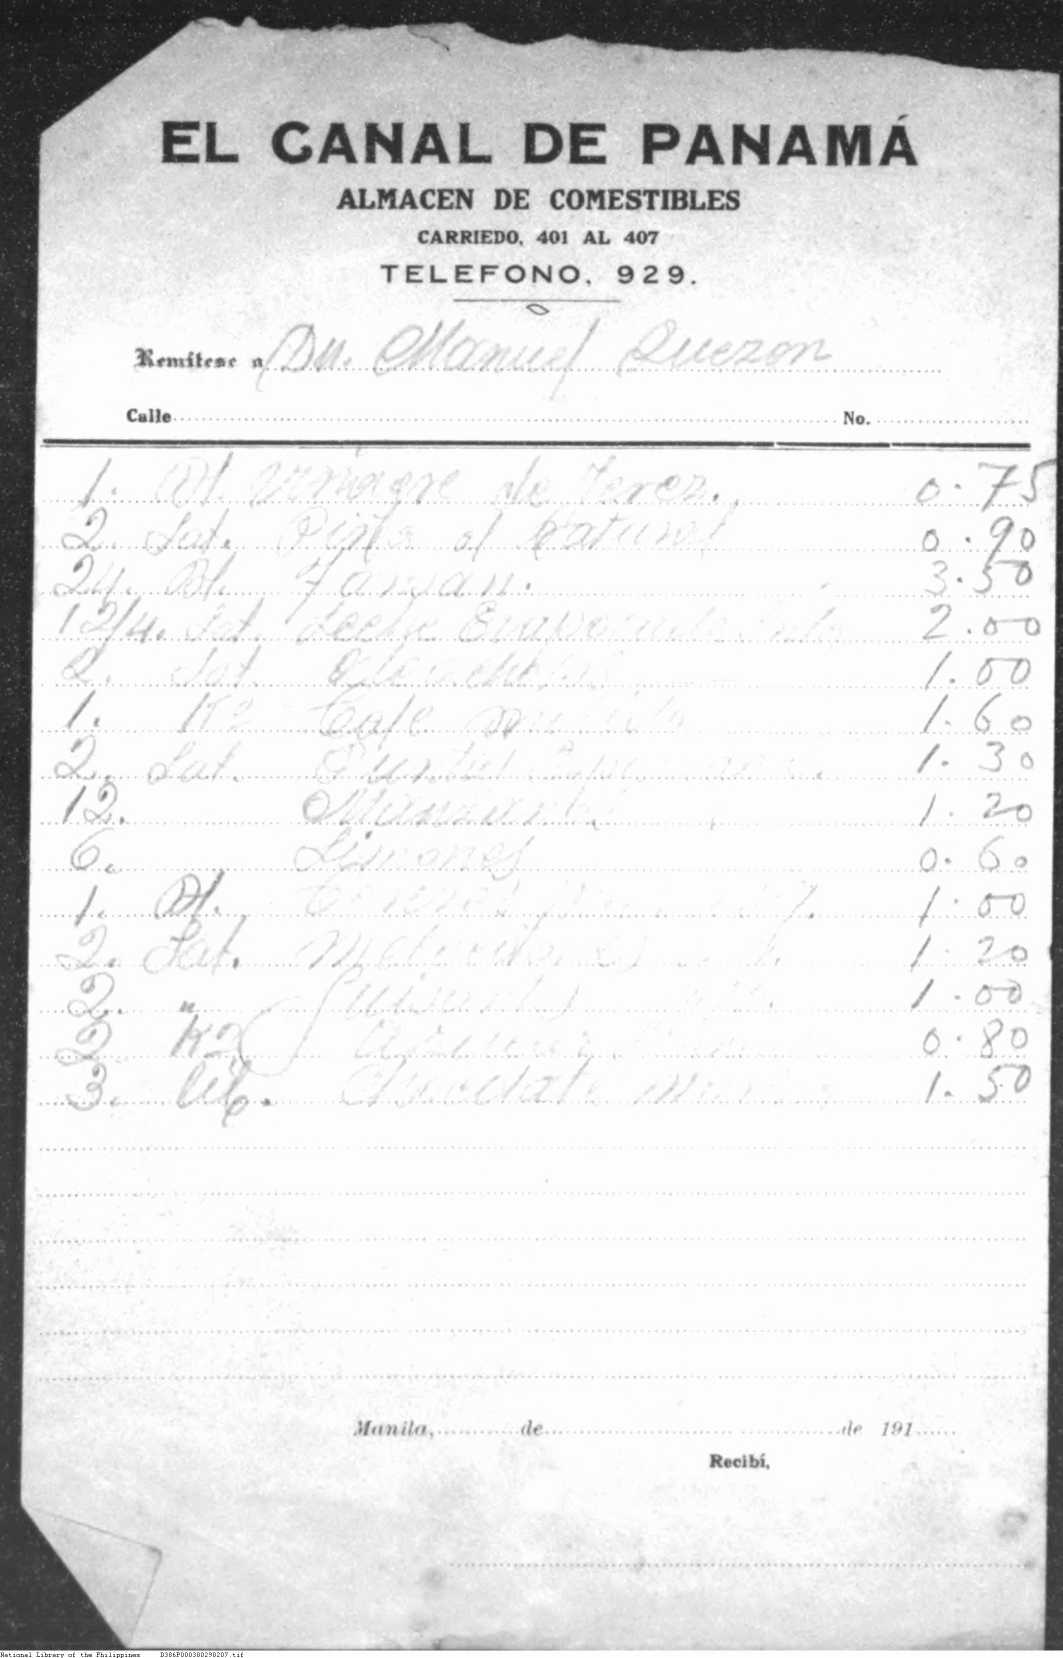 EL CANAL DE PANAMÁ
ALMACEN DE COMESTIBLES
CARRIEDO, 401 AL 407
TELEFONO, 929.
Remítese a Dn. Manuel Quezon
Calle No.
1. Bt. Vinagre de Jerez. 0.75
2. Lat. Piña al Natural 0.90
24. Bt. Tansan. 3.50
12/4. Lat. Leche Evaporada 2.00
2. Lat. 1.00
1. K2 Cafe molido 1.60
2. Lat. Puntas 1.30
12. Manzanas 1.20
6. Limones 0.60
1. Bt. 1.00
2. Lat. Melocotones 1.20
2. " Guisantes 1.00
2 K2 Azucar 0.80
3. lib. Chocolate 1.50
Manila, de de 191
Recibí,
National Library of the Philippines D386P000380298207.tif